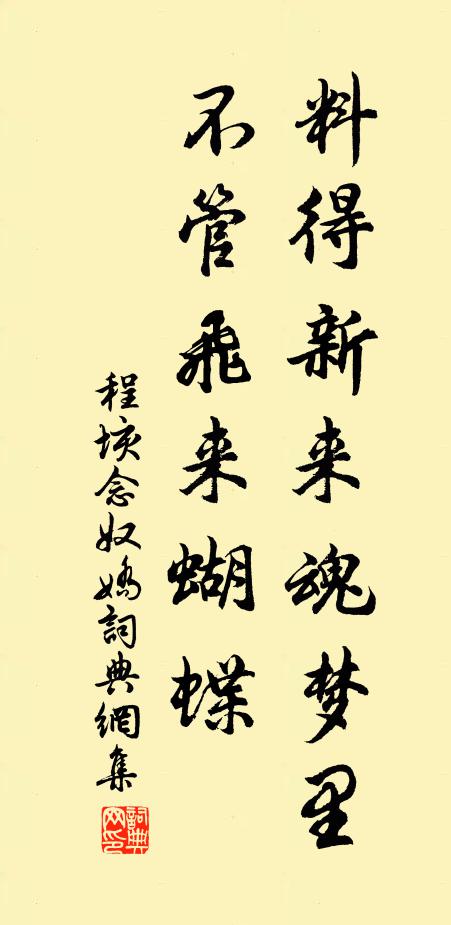 料得新来魂梦里
不管飞来蝴蝶
程垓念奴嬌詞典網集
詞典网印